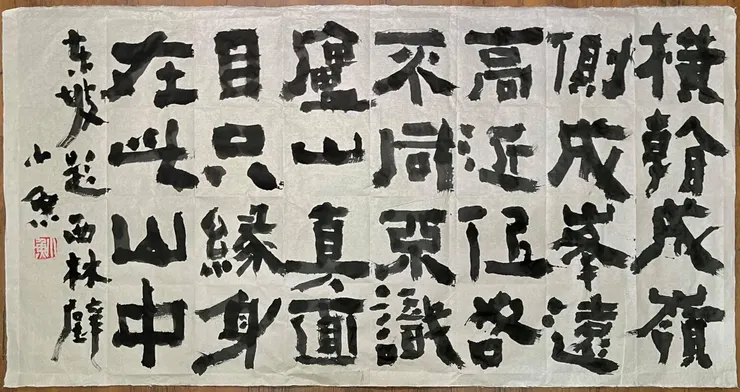 橫看成嶺
側成峯遠
高近低各
不同識
廬山真面
目只緣身
在此山中
东坡题西林壁
小魚